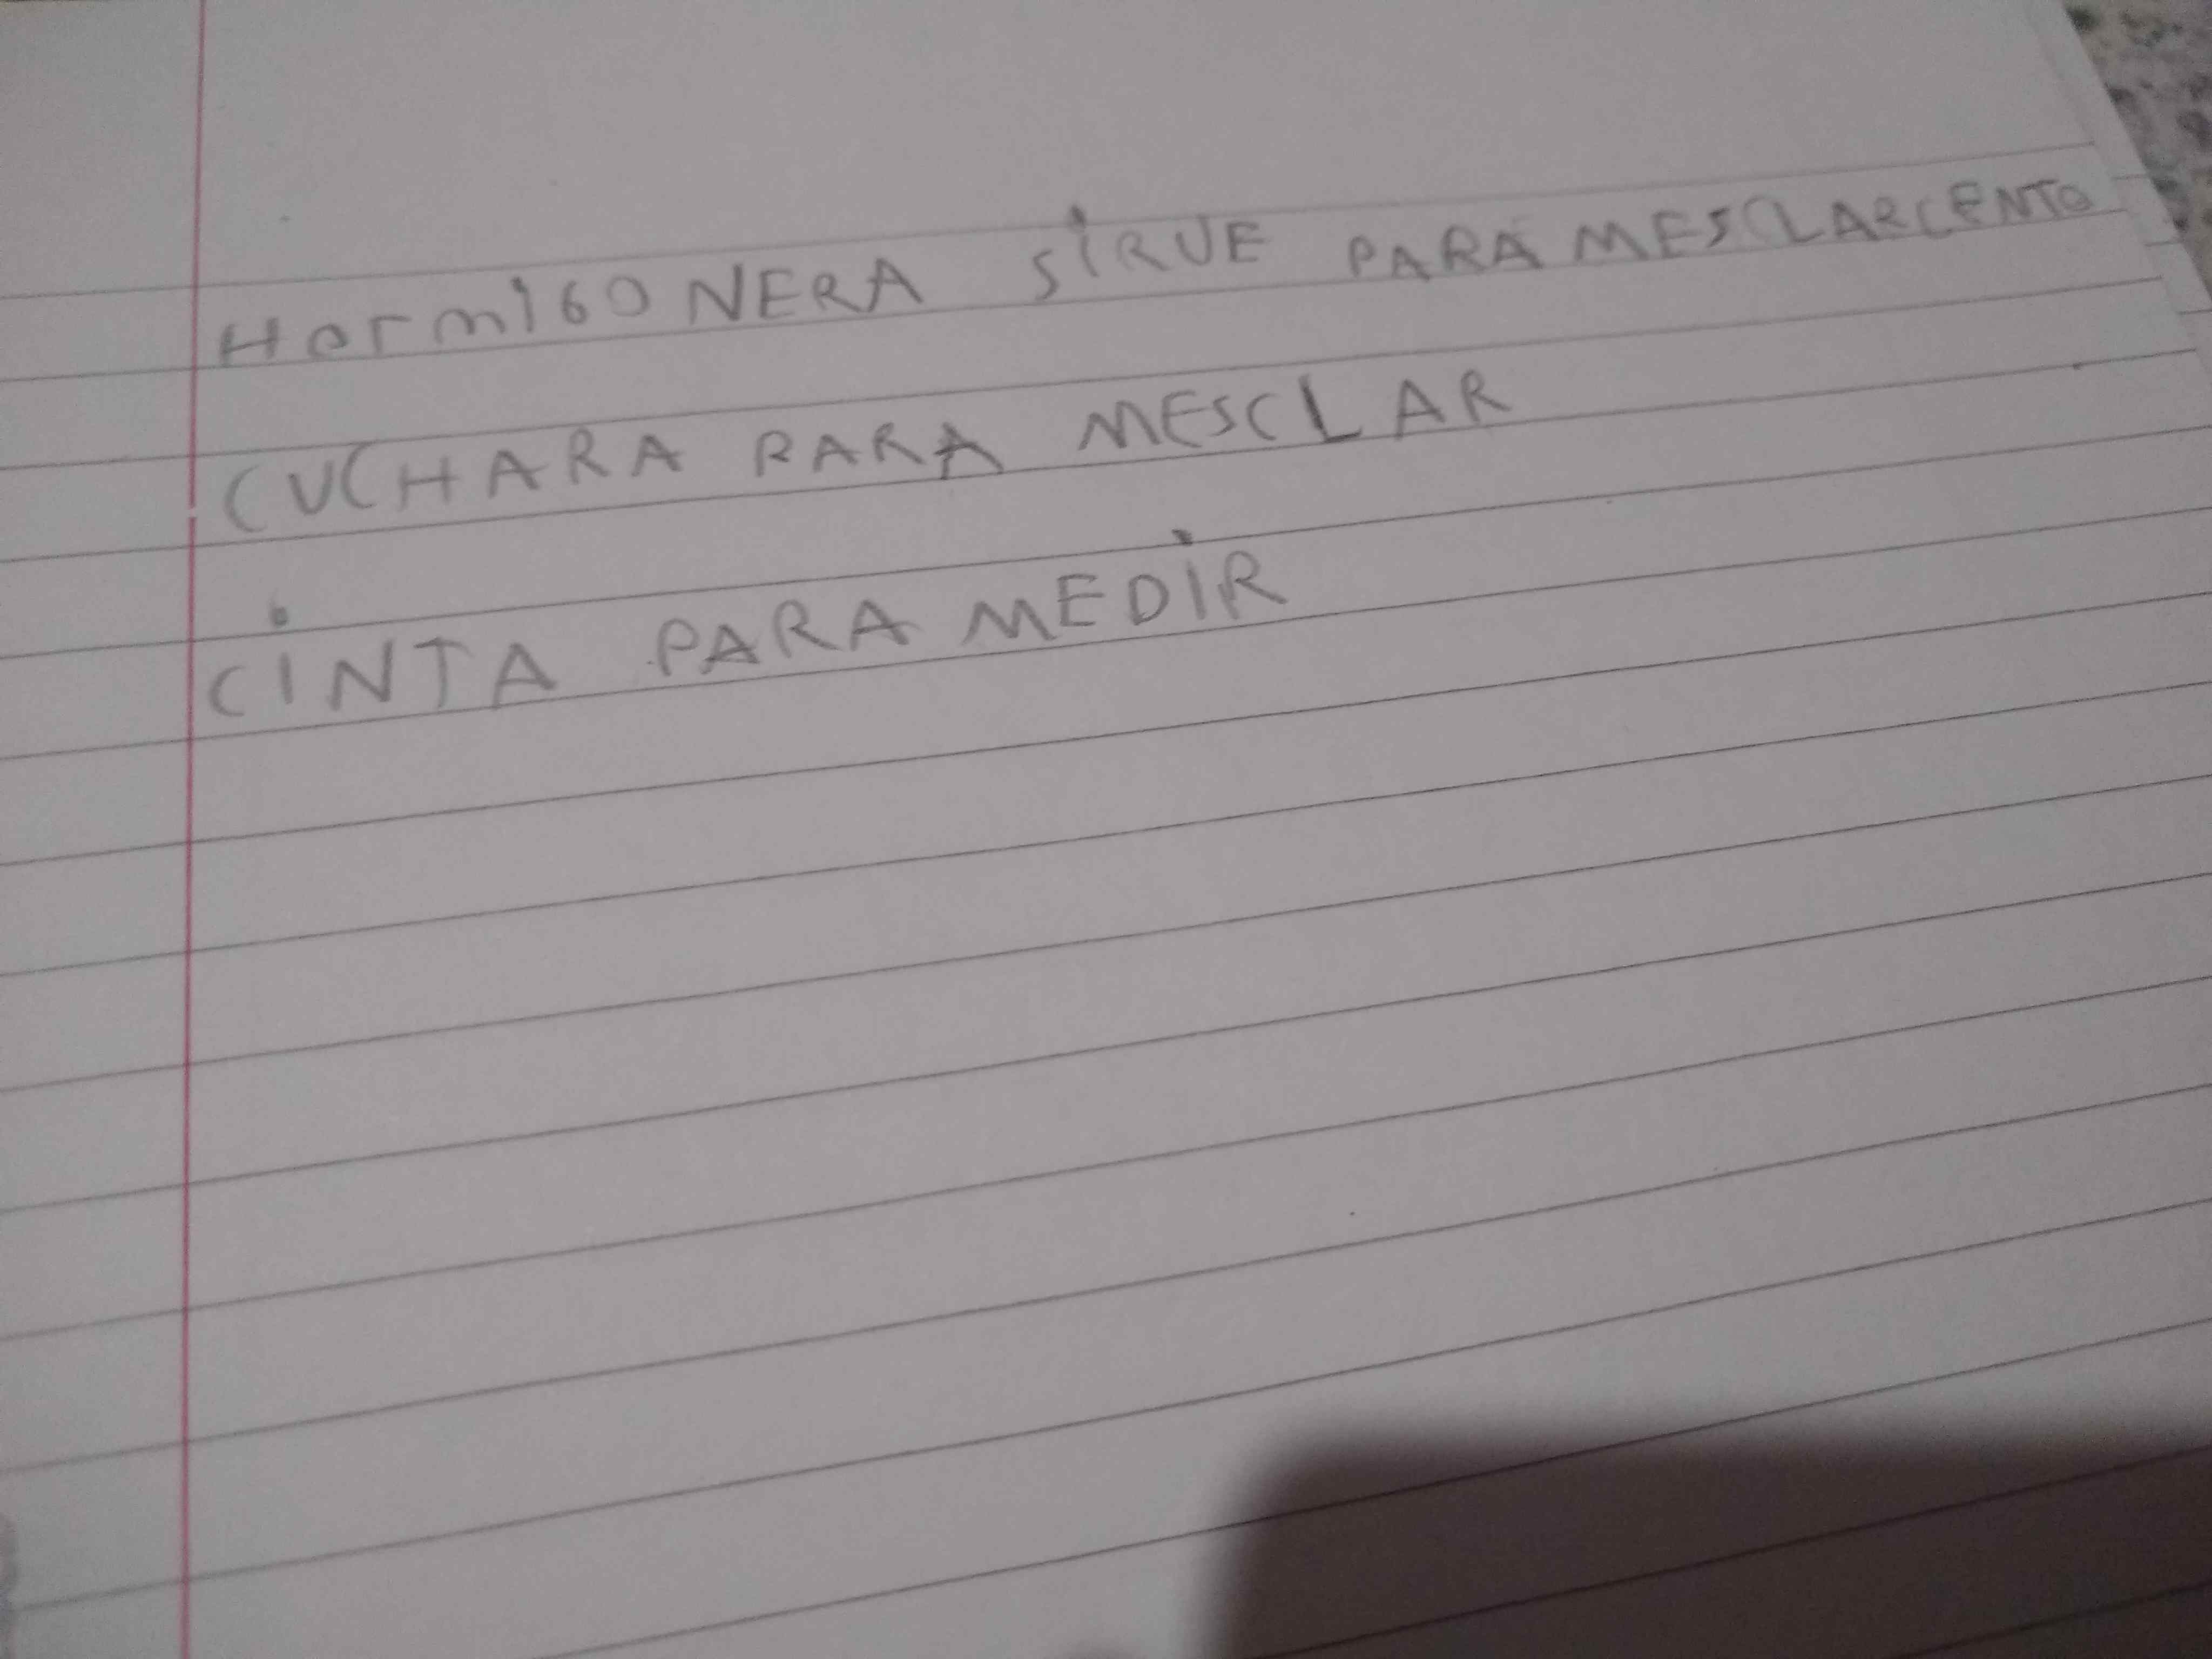 HormiGONERA SiRVE PARA MESCLARCENTO
CUCHARA PARA MESCLAR
CiNTA PARA MEDiR